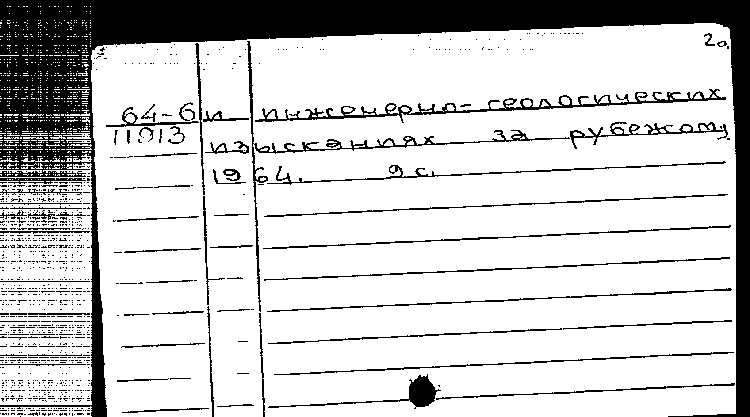 2о.
64-6 и инженерно-геологических
11913 изысканиях за рубежом,
1964. 9 с.